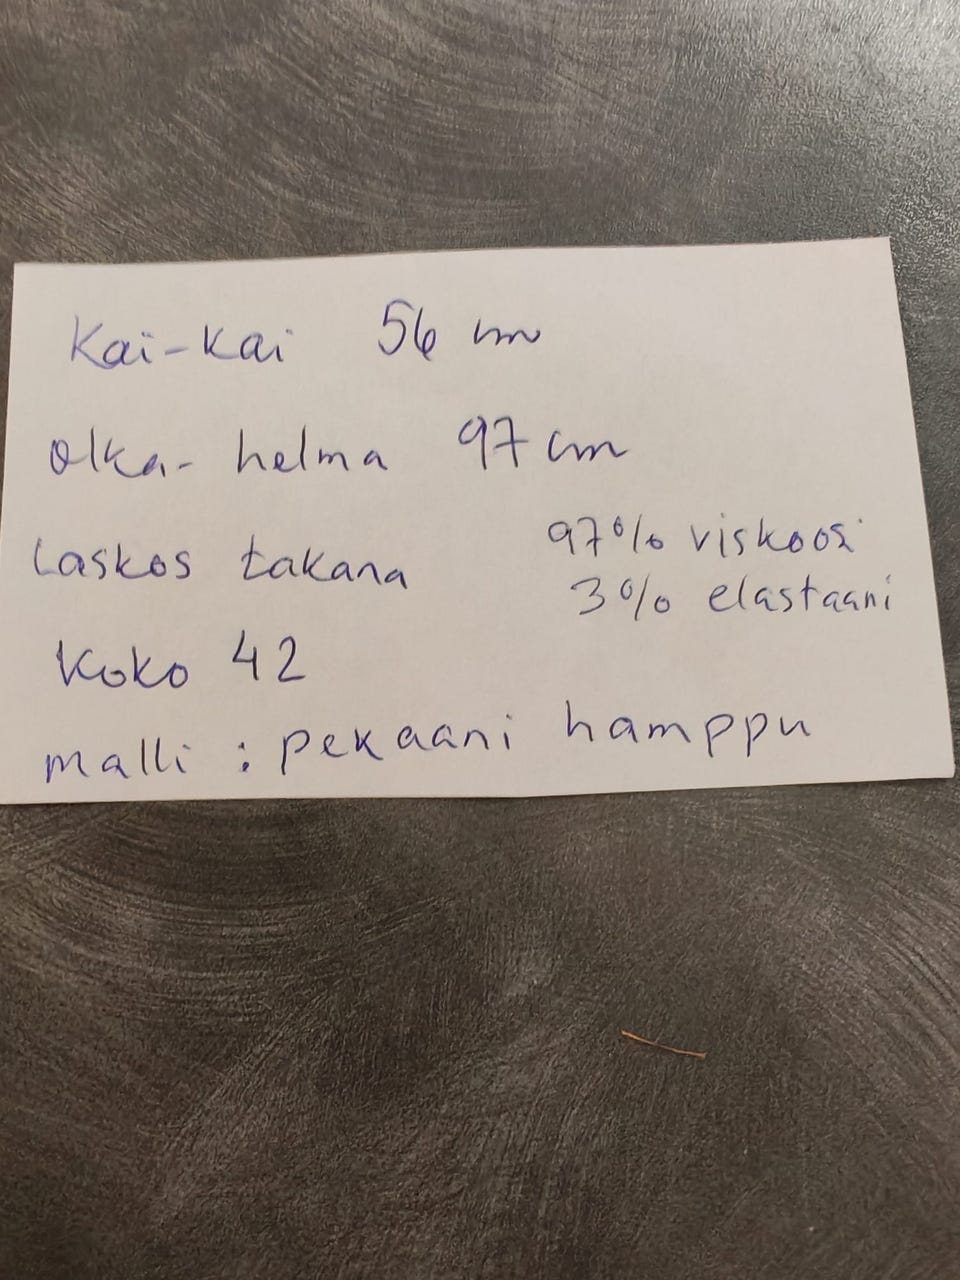 Kai-kai 56 cm
Olka-helma 97 cm
Laskos takana
97% viskoosi
3% elastaani
Koko 42
malli : pekaani hamppu